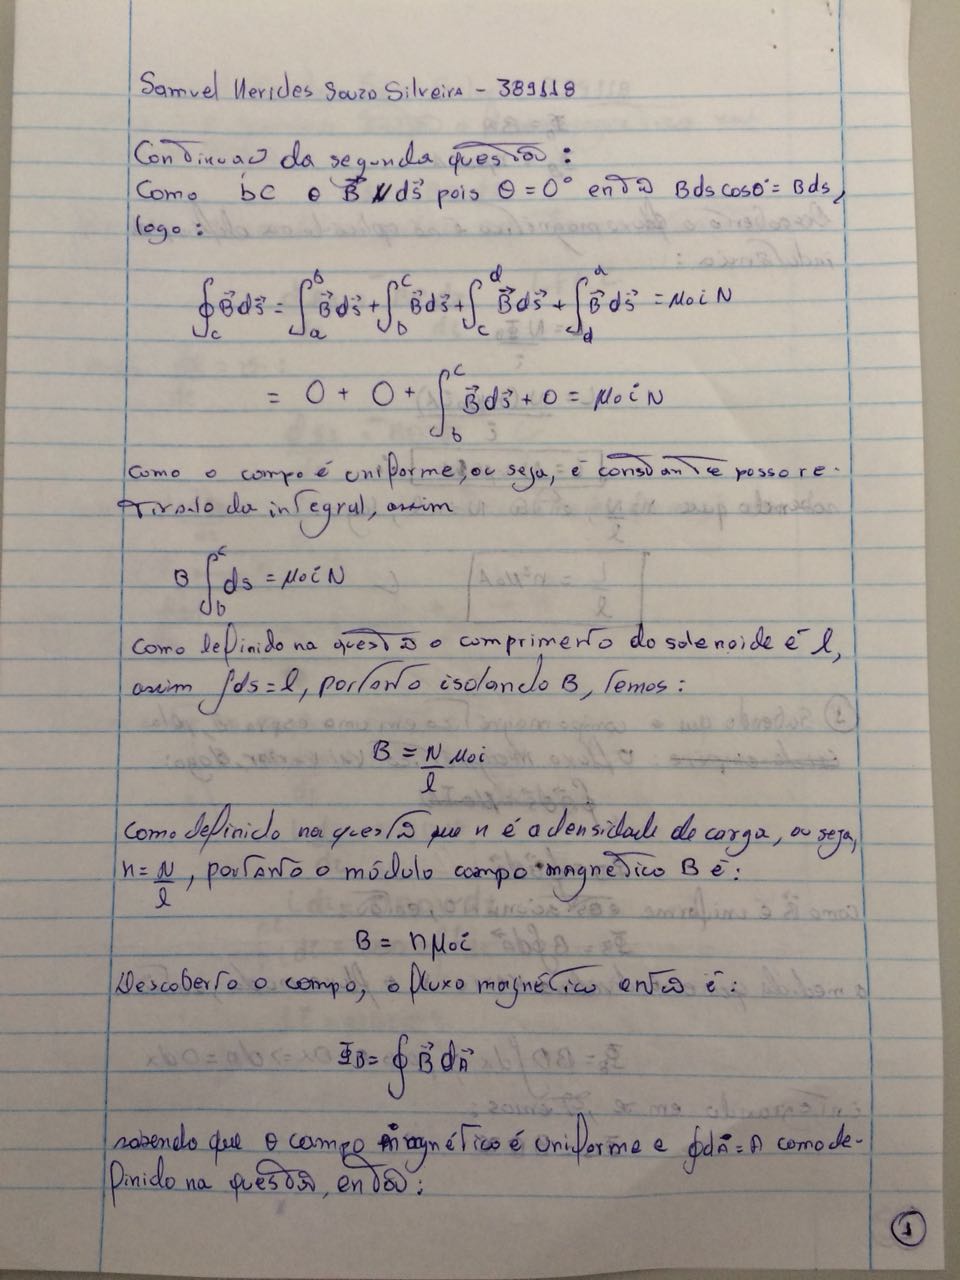 Samuel Herides Souza Silveira - 389118
Continuaão da segunda questão:
Como bc e B⃗ // ds⃗ pois θ = 0° então Bds cosθ = Bds,
logo:
∮c B⃗ds⃗ = ∫a^b B⃗ds⃗ + ∫b^c B⃗ds⃗ + ∫c^d B⃗ds⃗ + ∫d^a B⃗ds⃗ = μ0 i N
= 0 + 0 + ∫b^c B⃗ds⃗ + 0 = μ0 i N
Como o campo é uniforme, ou seja, é constante posso re-
tiralo da integral, assim
B ∫b^c ds = μ0 i N
Como definido na questão o comprimento do solenoide é l,
assim ∫ds = l, portanto isolando B, temos:
B = N/l μ0 i
Como definido na questão que n é a densidade de carga, ou seja,
n = N/l, portanto o módulo campo magnético B é:
B = n μ0 i
Descoberto o campo, o fluxo magnético então é:
ΦB = ∮ B⃗ dA⃗
sabendo que o campo magnético é uniforme e ∮dA⃗ = A como de-
finido na questão, então:
1